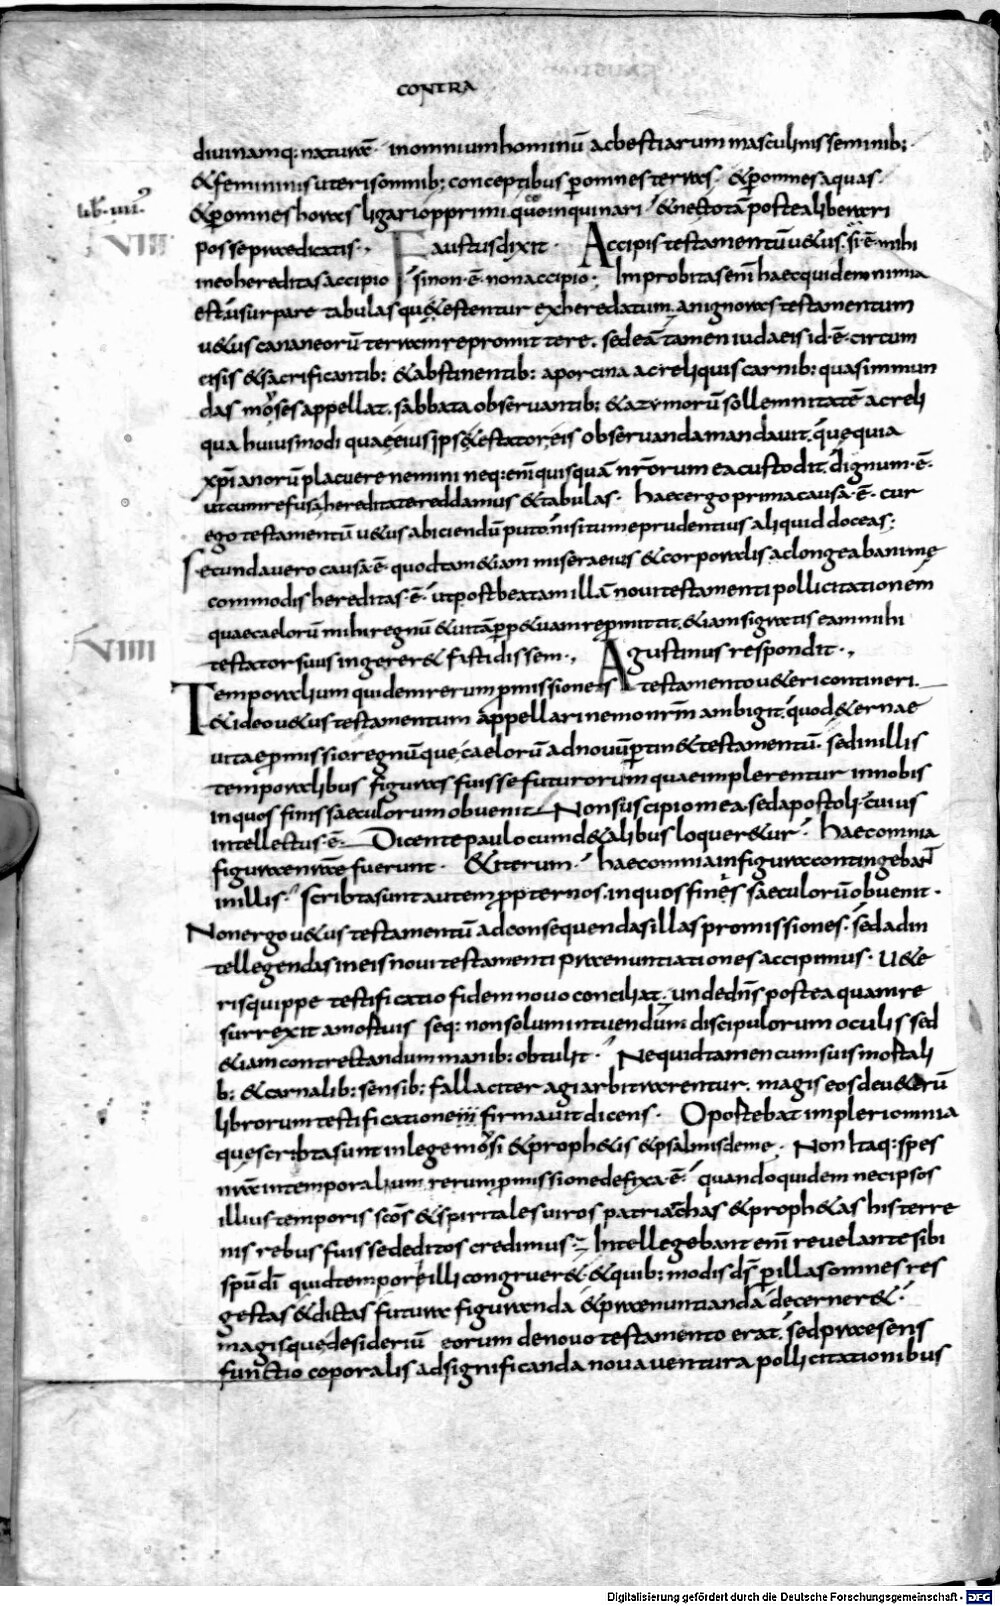 CONTRA
diuinamq: naturae. inomniumhominū acbestiarum masculinisseminib;
&femininisuterisomnib; conceptibus ꝑomnesterras. &ꝑomnesaquas.
&ꝑomneshoras ligariopprimi. quoinquinari &nectotāpostealiberari
lib. iiii.
VIII
possepraedicatis. Faustusdixit. Accipistestamentūu&us. si.ē.mihi
ineohereditasaccipio sinon.ē.nonaccipio. Improbitasenī haecquidemnimia
estusurpare tabulasqu&estentur exheredatum. anignorastestamentum
u&uscananeorū terramrepromittere. sedeātameniudaeisid.ē.circum
cisis &sacrificantib; &abstinentib; aporcina acreliquiscarnib; quasimmun
das moysesappellat. sabbataobseruantib; &azymorūsollemnitatē acreli
qua huiusmodi quaeeiusips&estatoreis obseruandamandauit. quequia
xp̄ianorūplacuerenemini neq:enīquisquā nr̄orum eacustodit. dignum.ē.
utcumrefusahereditatereddamus &tabulas. haecergoprimacausa.ē. cur
ego testamentū u&usabiciendūputo. nisitumeprudentius aliquiddoceas;
Secundauerocausa.ē. quodtam&iam miseraeius &corporalisaclongeabanime
commodishereditas.ē. utpostbeatamillā nouitestamentipollicitationem
quaecaelorūmihiregnū &uitāꝑp&uamreꝓmittit. &iamsigratis eammihi
testatorsuusingerer& fastidissem. Agustinus respondit.
VIIII
Temporalium quidemrerumꝓmissiones testamentou&ericontineri.
&ideou&ustestamentum appellarinemonr̄m ambigit. quod&ernae
uitaeꝓmissioregnūque caelorū adnouūꝑtin&testamentū. sedinillis
temporalibus figuras fuissefuturorumquaeimplerentur innobis
inquos finissaeculorumobuenit. Nonsuscipiomea. sedapostoli.cuius
intellectus.ē. Dicentepaulocumd&alibus loquer&ur. haecomnia
figuraenr̄aefuerunt. &iterum. haecomniainfiguracontingebant
inillis. scribtasuntautemꝓpternos. inquosfines saeculorūobuenit.
Nonergou&us testamentū adconsequendasillaspromissiones. sedadin
tellegendasineisnouitestamenti praenuntiationesaccipimus. U&e
risquippe testificatio fidemnouoconciliat. undedn̄s posteaquamre
surrexit amortuis seq: nonsolumintuendum discipulorum oculis sed
&iamcontrectandummanib; obtulit. Nequidtamencumsuismortali
b; &carnalib; sensib; fallaciter agiarbitrarentur. magis eosdeu&erū
librorumtestificationefirmauitdicens. Oportebatimpleriomnia
quescribtasuntinlegemoysi &proph&is &psalmisdeme. Nonitaq:spes
nr̄aintemporalium rerumꝓmissionedefixa.ē. quandoquidem necipsos
illiustemporis sc̄os &spiritalesuiros patriarchas &proph&as histerre
nis rebus fuissededitos credimus. Intellegebantenī reuelantesibi
spūdī quidtemporeilli congruer&.&quib; modisds̄ ꝑillasomnes res
gestas &dictas futura figuranda &praenuntianda decerner&.
magisquedesideriū eorum denouotestamento erat. sedpraesens
functio coporalis adsignificandanouauentura pollicitationibus
Digitalisierung gefördert durch die Deutsche Forschungsgemeinschaft - DFG